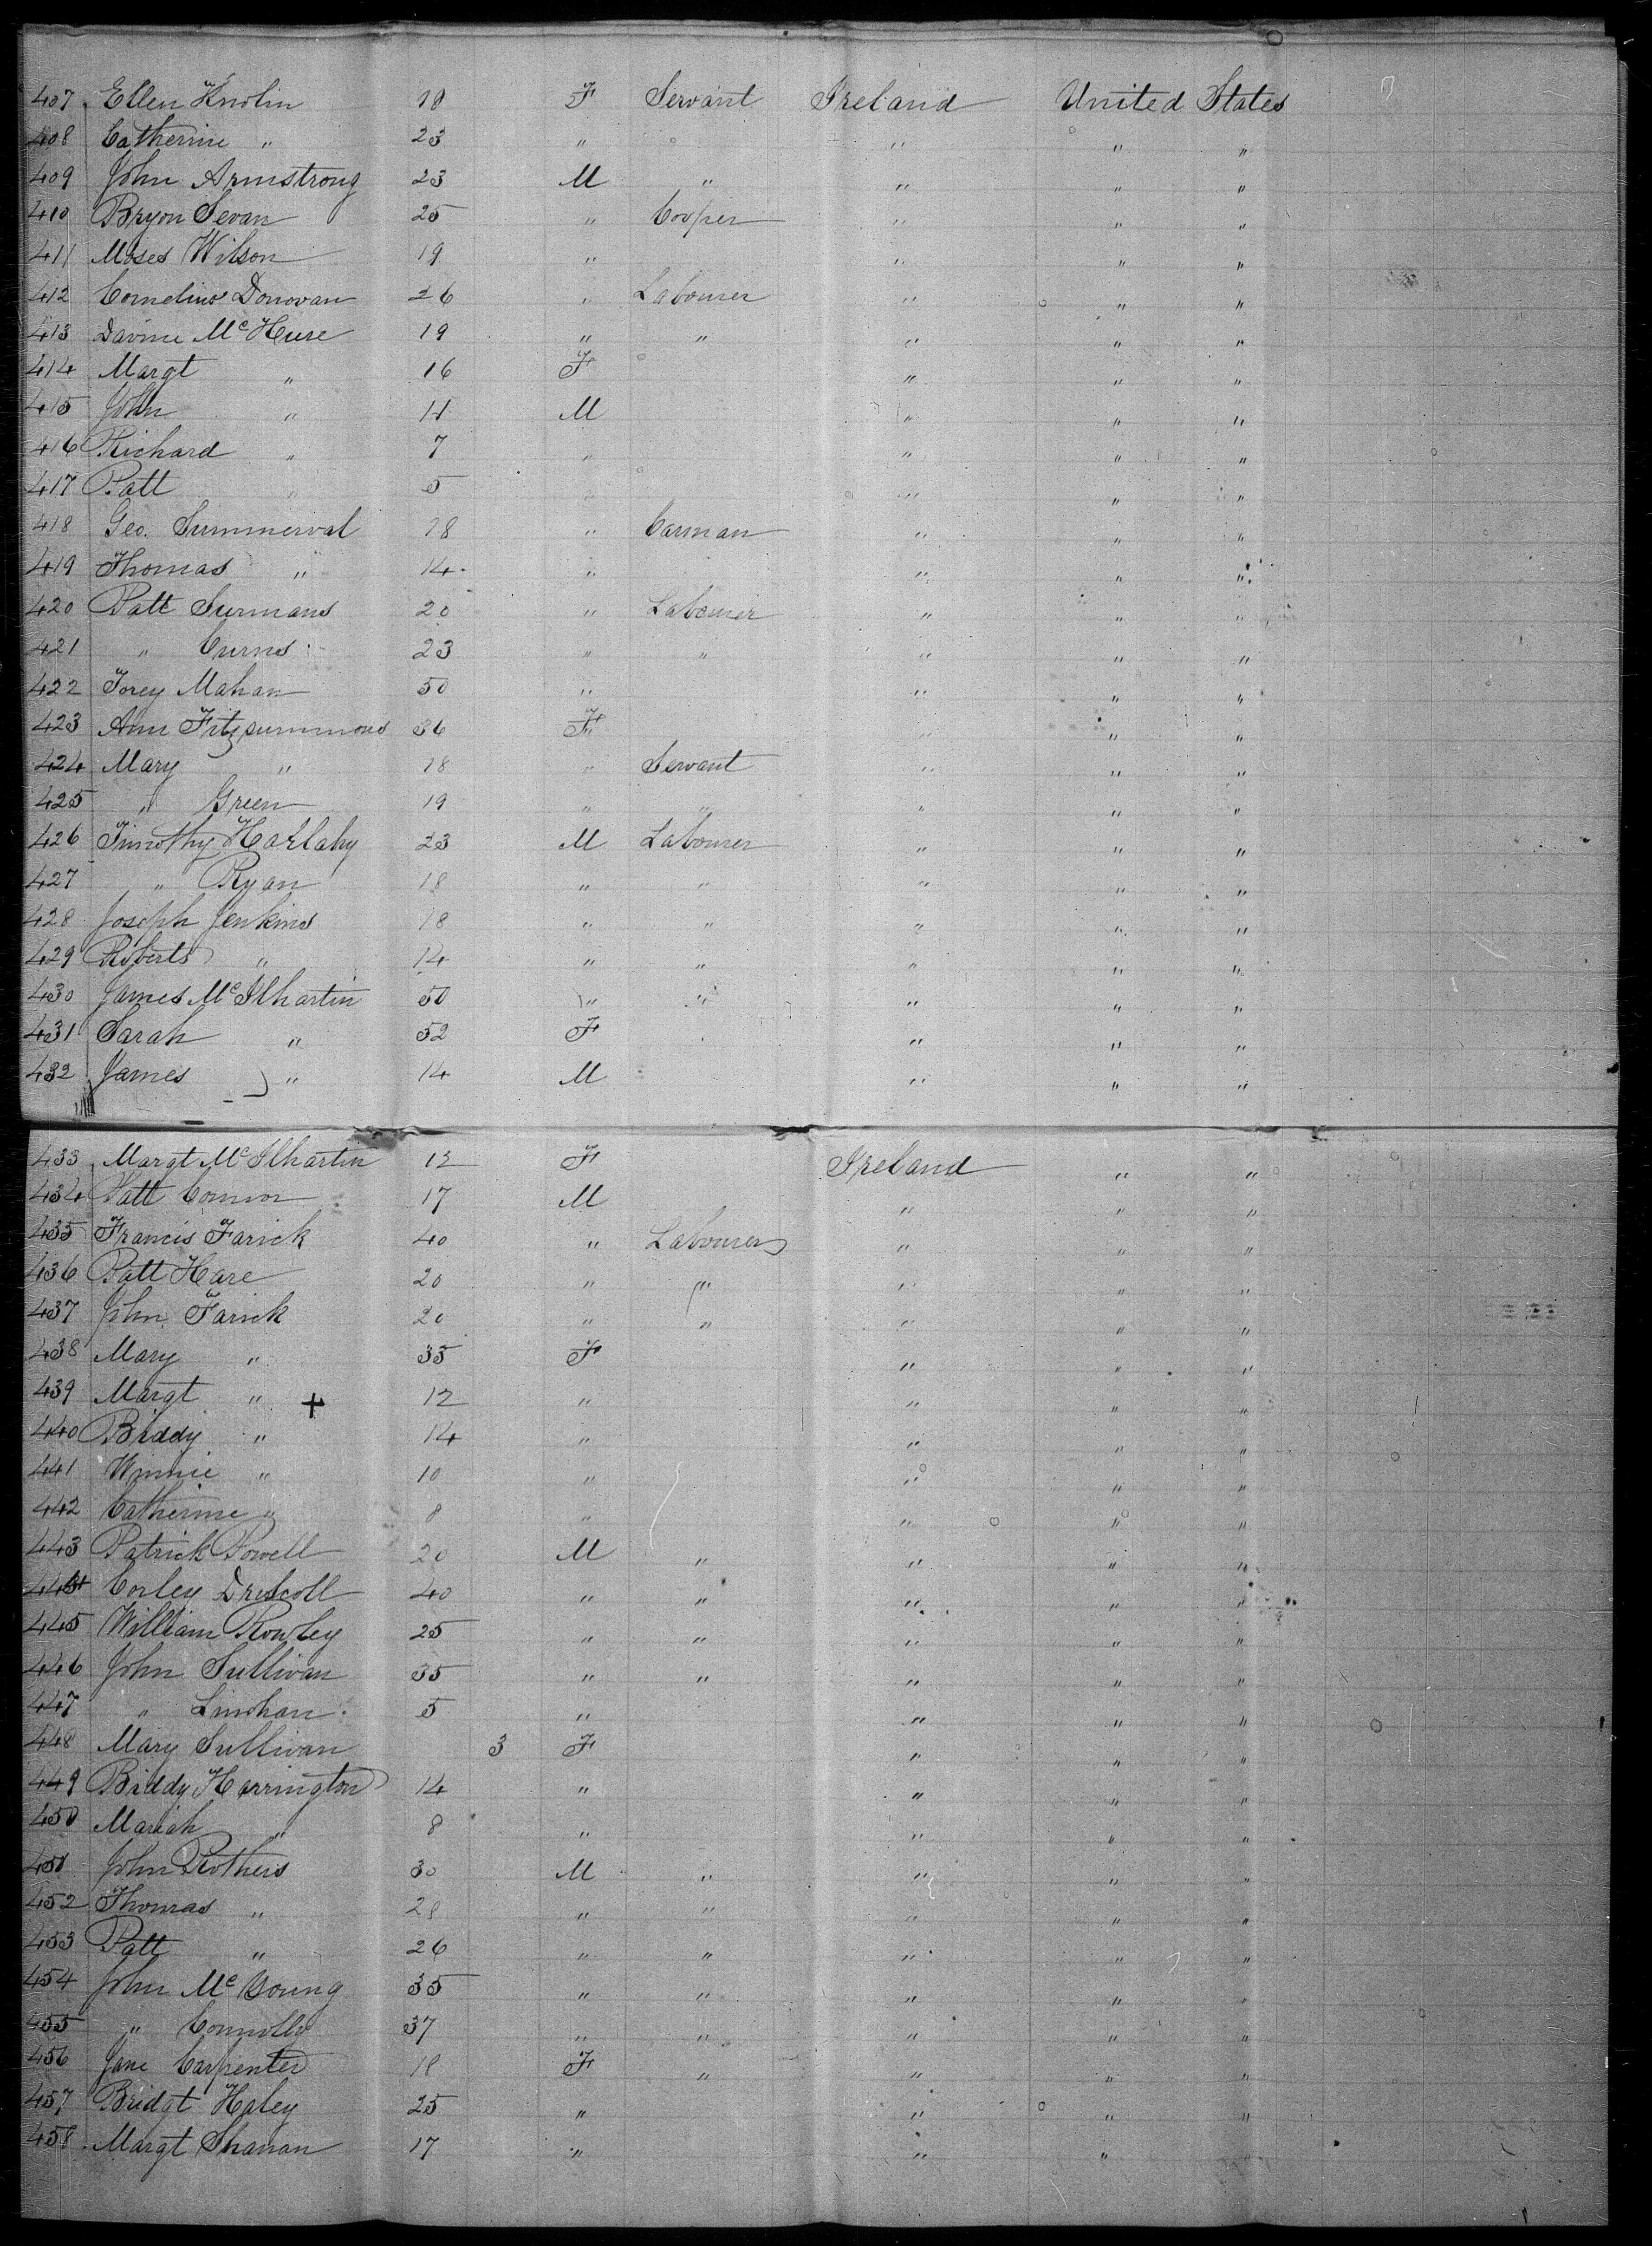 407 Ellen Knolin 18 F Servant Ireland United States
408 Catherine " 23 " " " "
409 John Armstrong 23 M " " " "
410 Bryon Sevan 25 " Cooper " " "
411 Moses Wilson 19 " " " "
412 Cornelius Donovan 26 " Labourer " " "
413 Davine McHure 19 " " " " "
414 Margt " 16 F " " "
415 John " 11 M " " "
416 Richard " 7 " " " "
417 Patt " 5 " " " "
418 Geo. Summerval 18 " Carman " " "
419 Thomas " 14 " " " "
420 Patt Surmans 20 " Labourer " " "
421 " Curns 23 " " " " "
422 Torey Mahan 50 " " " "
423 Ann Fitzsummons 36 F " " "
424 Mary " 18 " Servant " " "
425 " Green 19 " " " " "
426 Timothy Hallahy 23 M Labourer " " "
427 " Ryan 18 " " " " "
428 Joseph Jenkins 18 " " " " "
429 Roberts " 14 " " " " "
430 James McIlhartin 50 " " " " "
431 Sarah " 52 F " " "
432 James " 14 M " " "
433 Margt McIlhartin 12 F Ireland " "
434 Patt Connor 17 M " " "
435 Francis Farick 40 " Labourer " " "
436 Patt Hare 20 " " " " "
437 John Farick 20 " " " " "
438 Mary " 35 F " " "
439 Margt " + 12 " " " "
440 Biddy " 14 " " " "
441 Winnie " 10 " " " "
442 Catherine " 8 " " " "
443 Patrick Powell 20 M " " " "
444 Corley Driscoll 40 " " " " "
445 William Rowley 25 " " " " "
446 John Sullivan 35 " " " " "
447 " Linshan 5 " " " "
448 Mary Sullivan 3 F " " "
449 Biddy Harrington 14 " " " "
450 Mariah " 8 " " " "
451 John Rothers 30 M " " " "
452 Thomas " 28 " " " " "
453 Patt " 26 " " " " "
454 John McYoung 35 " " " " "
455 " Connolly 37 " " " " "
456 Jane Carpenter 18 F " " " "
457 Bridgt Haley 25 " " " "
458 Margt Shanan 17 " " " "